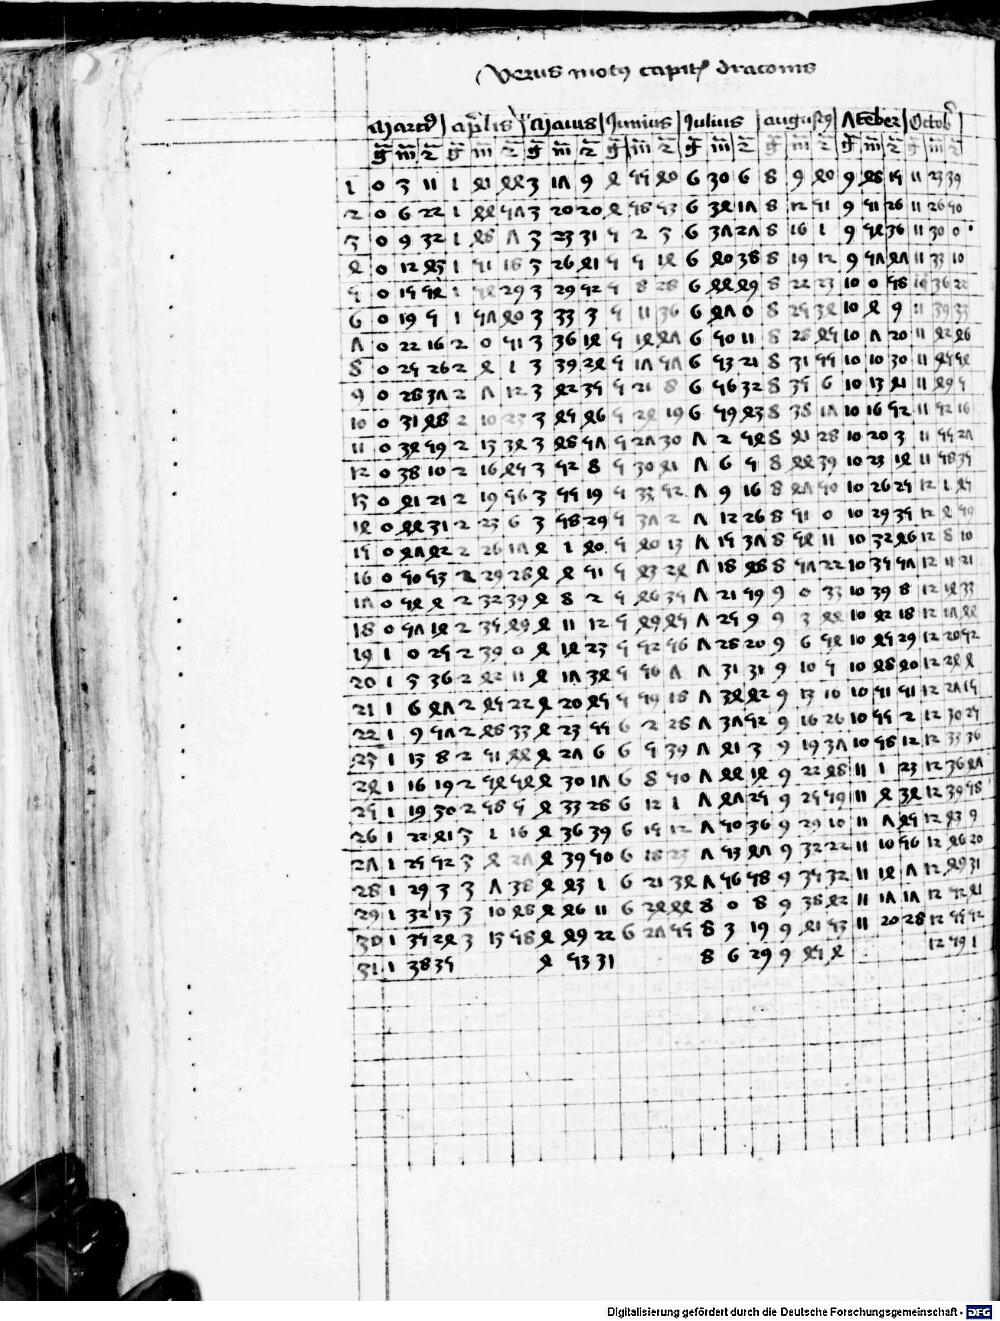 Verus motus capitis draconis
Marcius aprilis Maius Junius Julius augustus 7tember Octob
g m 2 g m 2 g m 2 g m 2 g m 2 g m 2 g m 2 g m 2
1 0 3 11 1 41 44 3 17 9 4 55 40 6 30 6 8 9 40 9 48 15 11 23 39
2 0 6 22 1 44 57 3 20 20 4 58 53 6 34 17 8 12 51 9 51 26 11 26 50
3 0 9 32 1 48 7 3 23 31 5 2 3 6 37 27 8 16 1 9 54 36 11 30 0
4 0 12 43 1 51 18 3 26 41 5 5 14 6 40 38 8 19 12 9 57 47 11 33 10
5 0 15 54 1 54 29 3 29 52 5 8 28 6 44 49 8 22 23 10 0 58 11 36 22
6 0 19 5 1 57 40 3 33 3 5 11 36 6 47 0 8 25 34 10 4 9 11 39 33
7 0 22 16 2 0 51 3 36 14 5 14 47 6 50 11 8 28 45 10 7 20 11 42 46
8 0 25 26 2 4 1 3 39 24 5 17 57 6 53 21 8 31 55 10 10 30 11 45 54
9 0 28 37 2 7 12 3 42 35 5 21 8 6 56 32 8 35 6 10 13 41 11 49 5
10 0 31 48 2 10 23 3 45 46 5 24 19 6 59 43 8 38 17 10 16 52 11 52 16
11 0 34 59 2 13 34 3 48 57 5 27 30 7 2 54 8 41 28 10 20 3 11 55 27
12 0 38 10 2 16 45 3 52 8 5 30 41 7 6 5 8 44 39 10 23 14 11 58 35
13 0 41 21 2 19 56 3 55 19 5 33 52 7 9 16 8 47 50 10 26 25 12 1 45
14 0 44 31 2 23 6 3 58 29 5 37 2 7 12 26 8 51 0 10 29 35 12 4 59
15 0 47 42 2 26 17 4 1 40 5 40 13 7 15 37 8 54 11 10 32 46 12 8 10
16 0 50 53 2 29 28 4 4 51 5 43 24 7 18 48 8 57 22 10 35 57 12 11 21
17 0 54 4 2 32 39 4 8 2 5 46 35 7 21 59 9 0 33 10 39 8 12 14 33
18 0 57 14 2 35 49 4 11 12 5 49 45 7 25 9 9 3 44 10 42 18 12 17 44
19 1 0 25 2 39 0 4 14 23 5 52 56 7 28 20 9 6 54 10 45 29 12 20 52
20 1 3 36 2 42 11 4 17 34 5 56 7 7 31 31 9 10 5 10 48 40 12 24 4
21 1 6 47 2 45 22 4 20 45 5 59 18 7 34 42 9 13 16 10 51 51 12 27 15
22 1 9 57 2 48 33 4 23 55 6 2 28 7 37 52 9 16 26 10 55 2 12 30 25
23 1 13 8 2 51 44 4 27 6 6 5 39 7 41 3 9 19 37 10 58 12 12 33 36
24 1 16 19 2 54 54 4 30 17 6 8 50 7 44 14 9 22 48 11 1 23 12 36 47
25 1 19 30 2 58 5 4 33 28 6 12 1 7 47 25 9 25 59 11 4 34 12 39 58
26 1 22 41 3 1 16 4 36 39 6 15 12 7 50 36 9 29 10 11 7 45 12 43 9
27 1 25 52 3 4 27 4 39 50 6 18 23 7 53 47 9 32 22 11 10 56 12 46 20
28 1 29 3 3 7 38 4 43 1 6 21 34 7 56 58 9 35 32 11 14 7 12 49 31
29 1 32 13 3 10 48 4 46 11 6 24 44 8 0 8 9 38 42 11 17 17 12 52 41
30 1 35 24 3 13 58 4 49 22 6 27 55 8 3 19 9 41 53 11 20 28 12 55 52
31 1 38 35 4 53 31 8 6 29 9 45 4 12 59 1
Digitalisierung gefördert durch die Deutsche Forschungsgemeinschaft - DFG